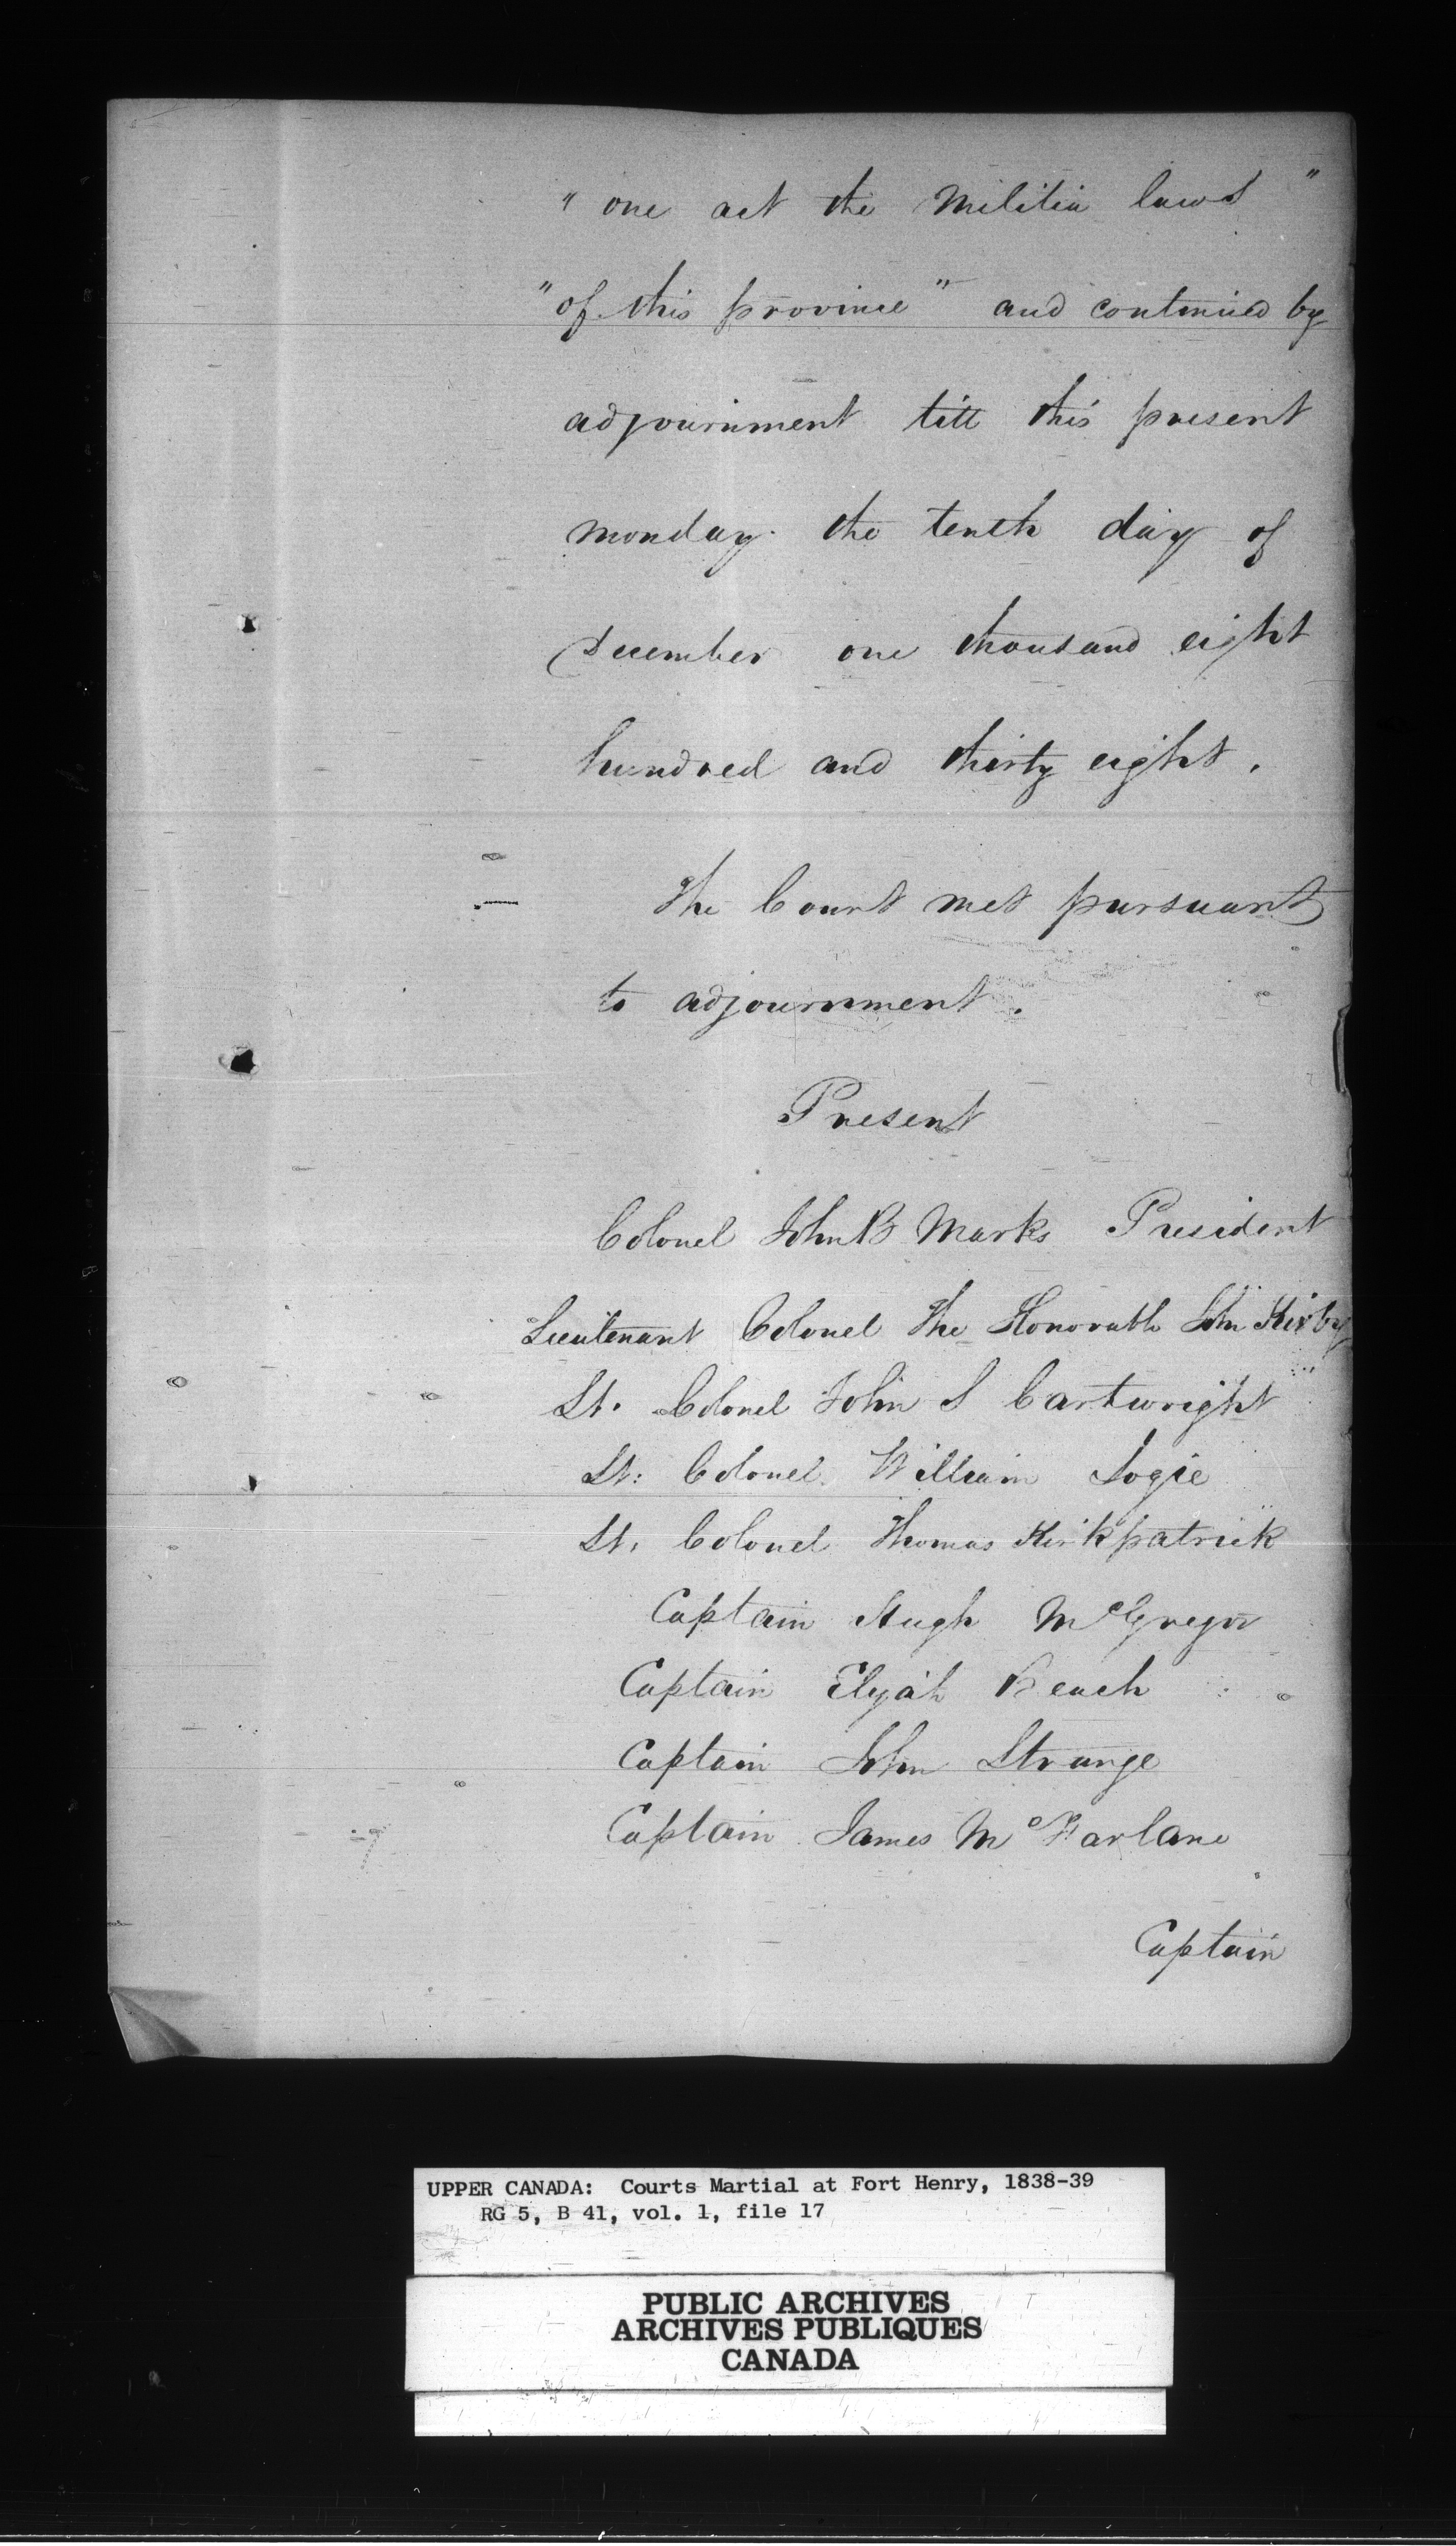 " one act the Militia laws "
" of this province " and continued by
adjournment till this present
monday the tenth day of
December one thousand eight
hundred and thirty eight.
The Court met pursuant
to adjournment.
Present
Colonel John B Marks President
Lieutenant Colonel The Honorable John Kirby
Lt. Colonel John S Cartwright
Lt: Colonel William Logie
Lt. Colonel Thomas Kirkpatrick
Captain Hugh McGregor
Captain Elijah Beach
Captain John Strange
Captain James McFarlane
Captain
UPPER CANADA: Courts Martial at Fort Henry, 1838-39
RG 5, B 41, vol. 1, file 17
PUBLIC ARCHIVES
ARCHIVES PUBLIQUES
CANADA